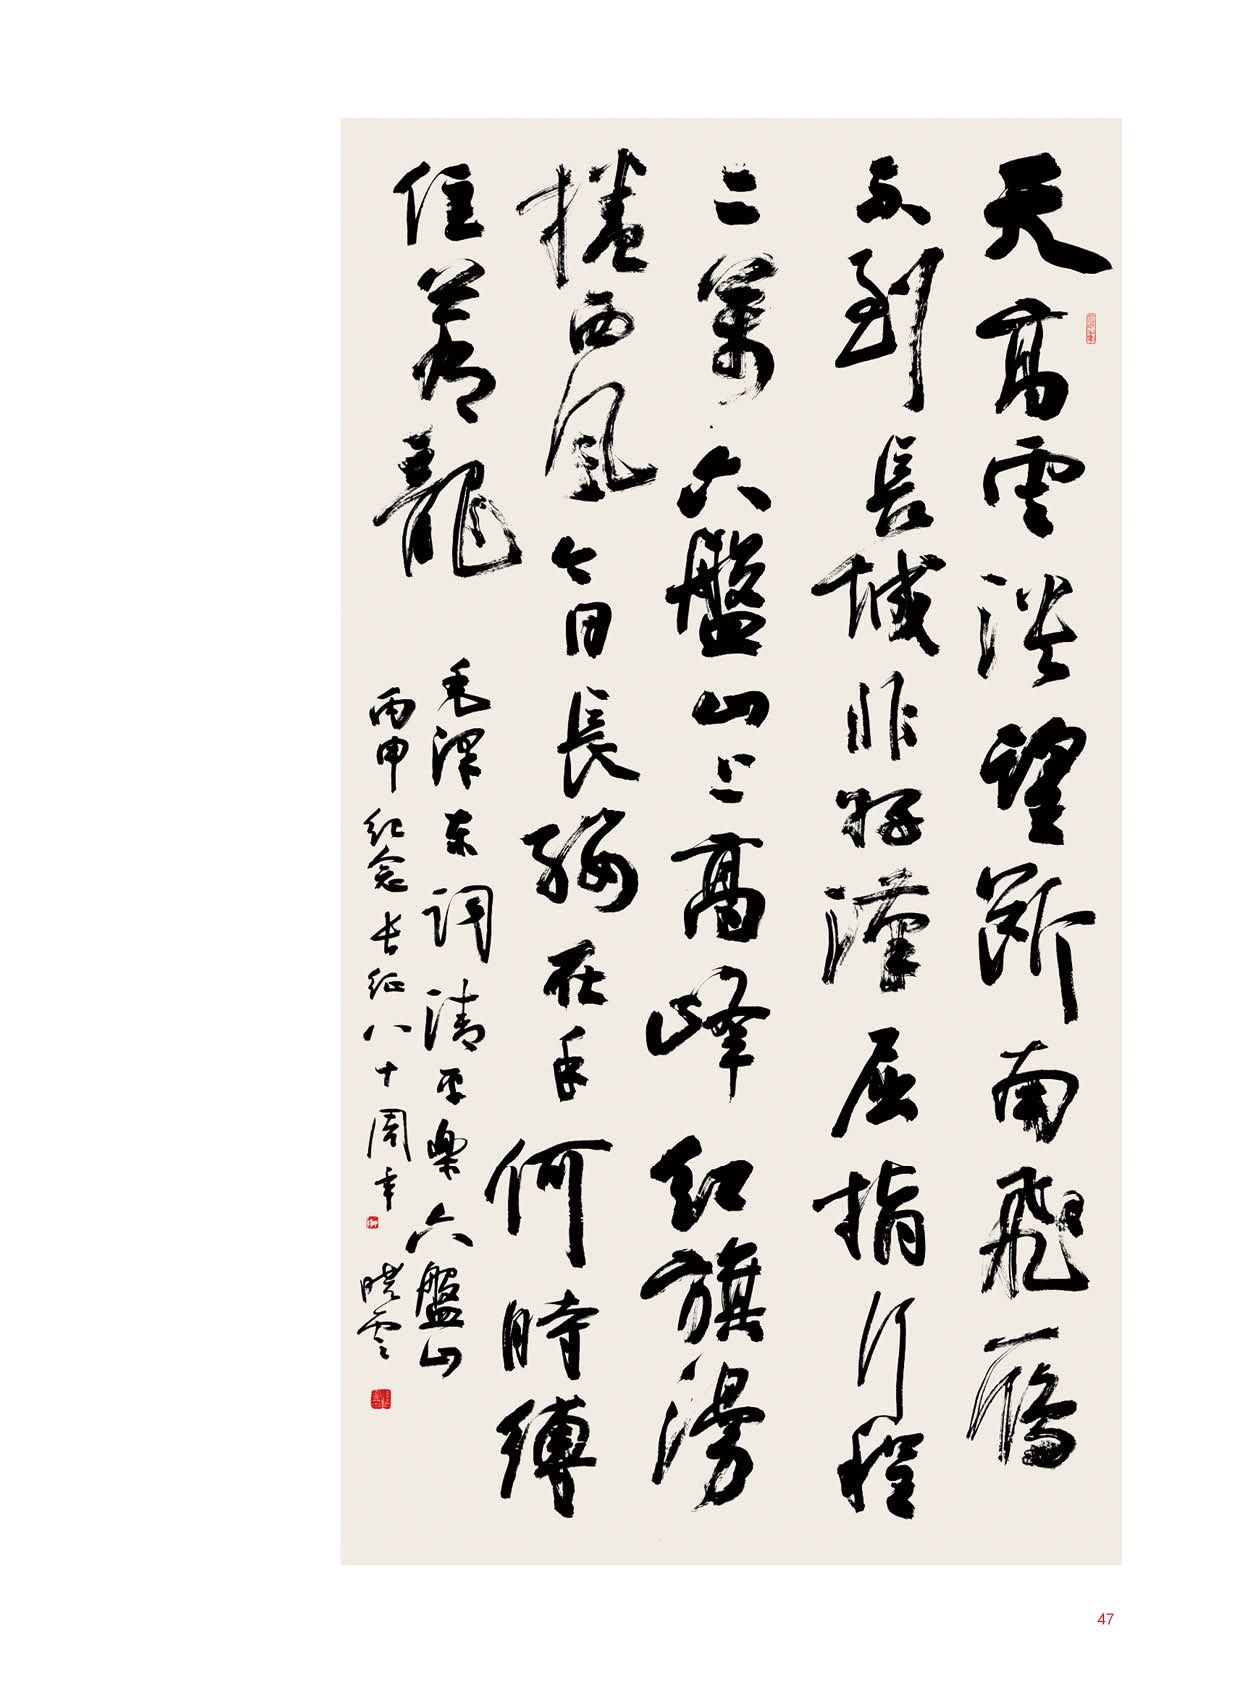 天高雲淡望斷南飛雁
不到長城非好漢屈指行程
二萬六盤山上高峰紅旗漫
捲西風今日長纓在手何時縛
住蒼龍
毛澤东詞清平樂六盤山
丙申纪念长征八十周年
晓雲
47